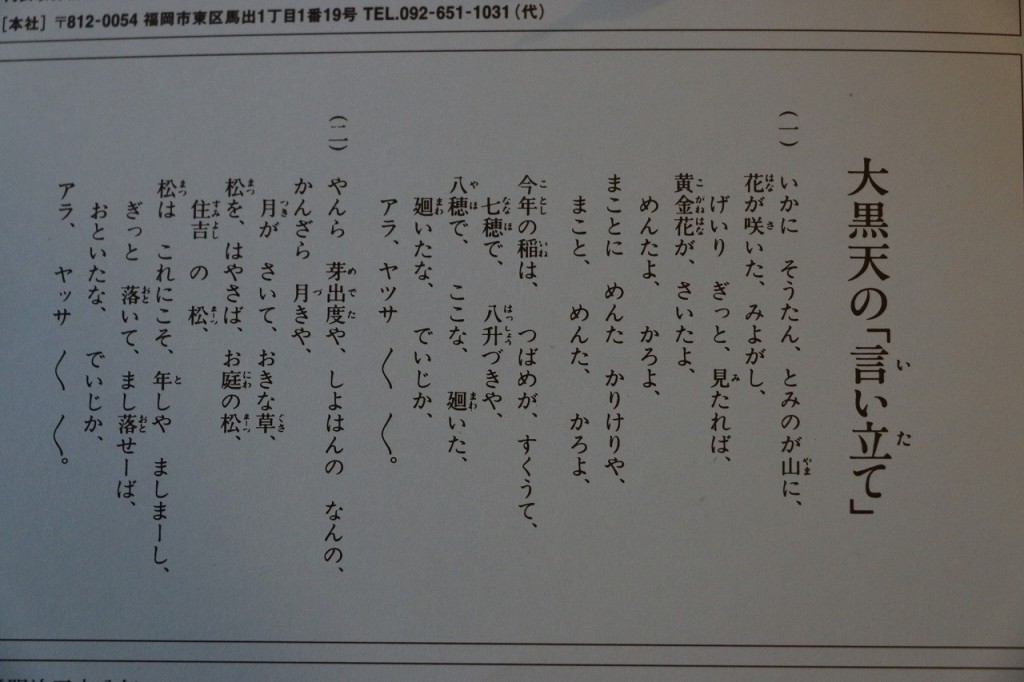 [本社] 〒812-0054 福岡市東区馬出1丁目1番19号 TEL.092-651-1031(代)
大黒天の「言い立て」
(一) いかに そうたん、とみのが山に、
花が咲いた、みよがし、
げいり ぎっと、見たれば、
黄金花が、さいたよ、
めんたよ、 かろよ、
まことに めんた かりけりや、
まこと、 めんた、 かろよ、
今年の稲は、 つばめが、すくうて、
七穂で、 八升づきや、
八穂で、 ここな、 廻いた、
廻いたな、 でいじか、
アラ、ヤツサ 〱 〱。
(二) やんら 芽出度や、しよはんの なんの、
かんざら 月きや、
月が さいて、おきな草、
松を、はやさば、お庭の松、
住吉 の 松、
松は これにこそ、年しや ましまーし、
ぎっと 落いて、まし落せーば、
おといたな、 でいじか、
アラ、 ヤッサ 〱 〱。